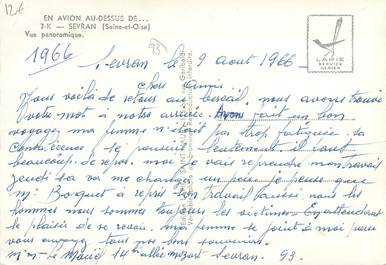 12€
EN AVION AU-DESSUS DE...
3-K — SEVRAN (Seine-et-Oise)
Vue panoramique.
1966
93
LAPIE
SERVICE
AERIEN
Sevran le 9 aout 1966 -
chers amis
Nous voilà de retour au bercail. nous avons trouvé
votre mot à notre arrivée. Avons fait un bon
voyage, ma femme n'était pas trop fatiguée. sa
seulement il faut
beaucoup de repos. moi je vais reprendre mon travail
jeudi sa va me changer un peu. je pense que
Mr Boquet à repris son travail aussi, nous les
hommes nous sommes toujours les victimes. En attendant
le plaisir de se revoir. ma femme se joint à moi pour
vous envoyer tous nos bon souvenirs.
14 allée mozart Sevran. 93.